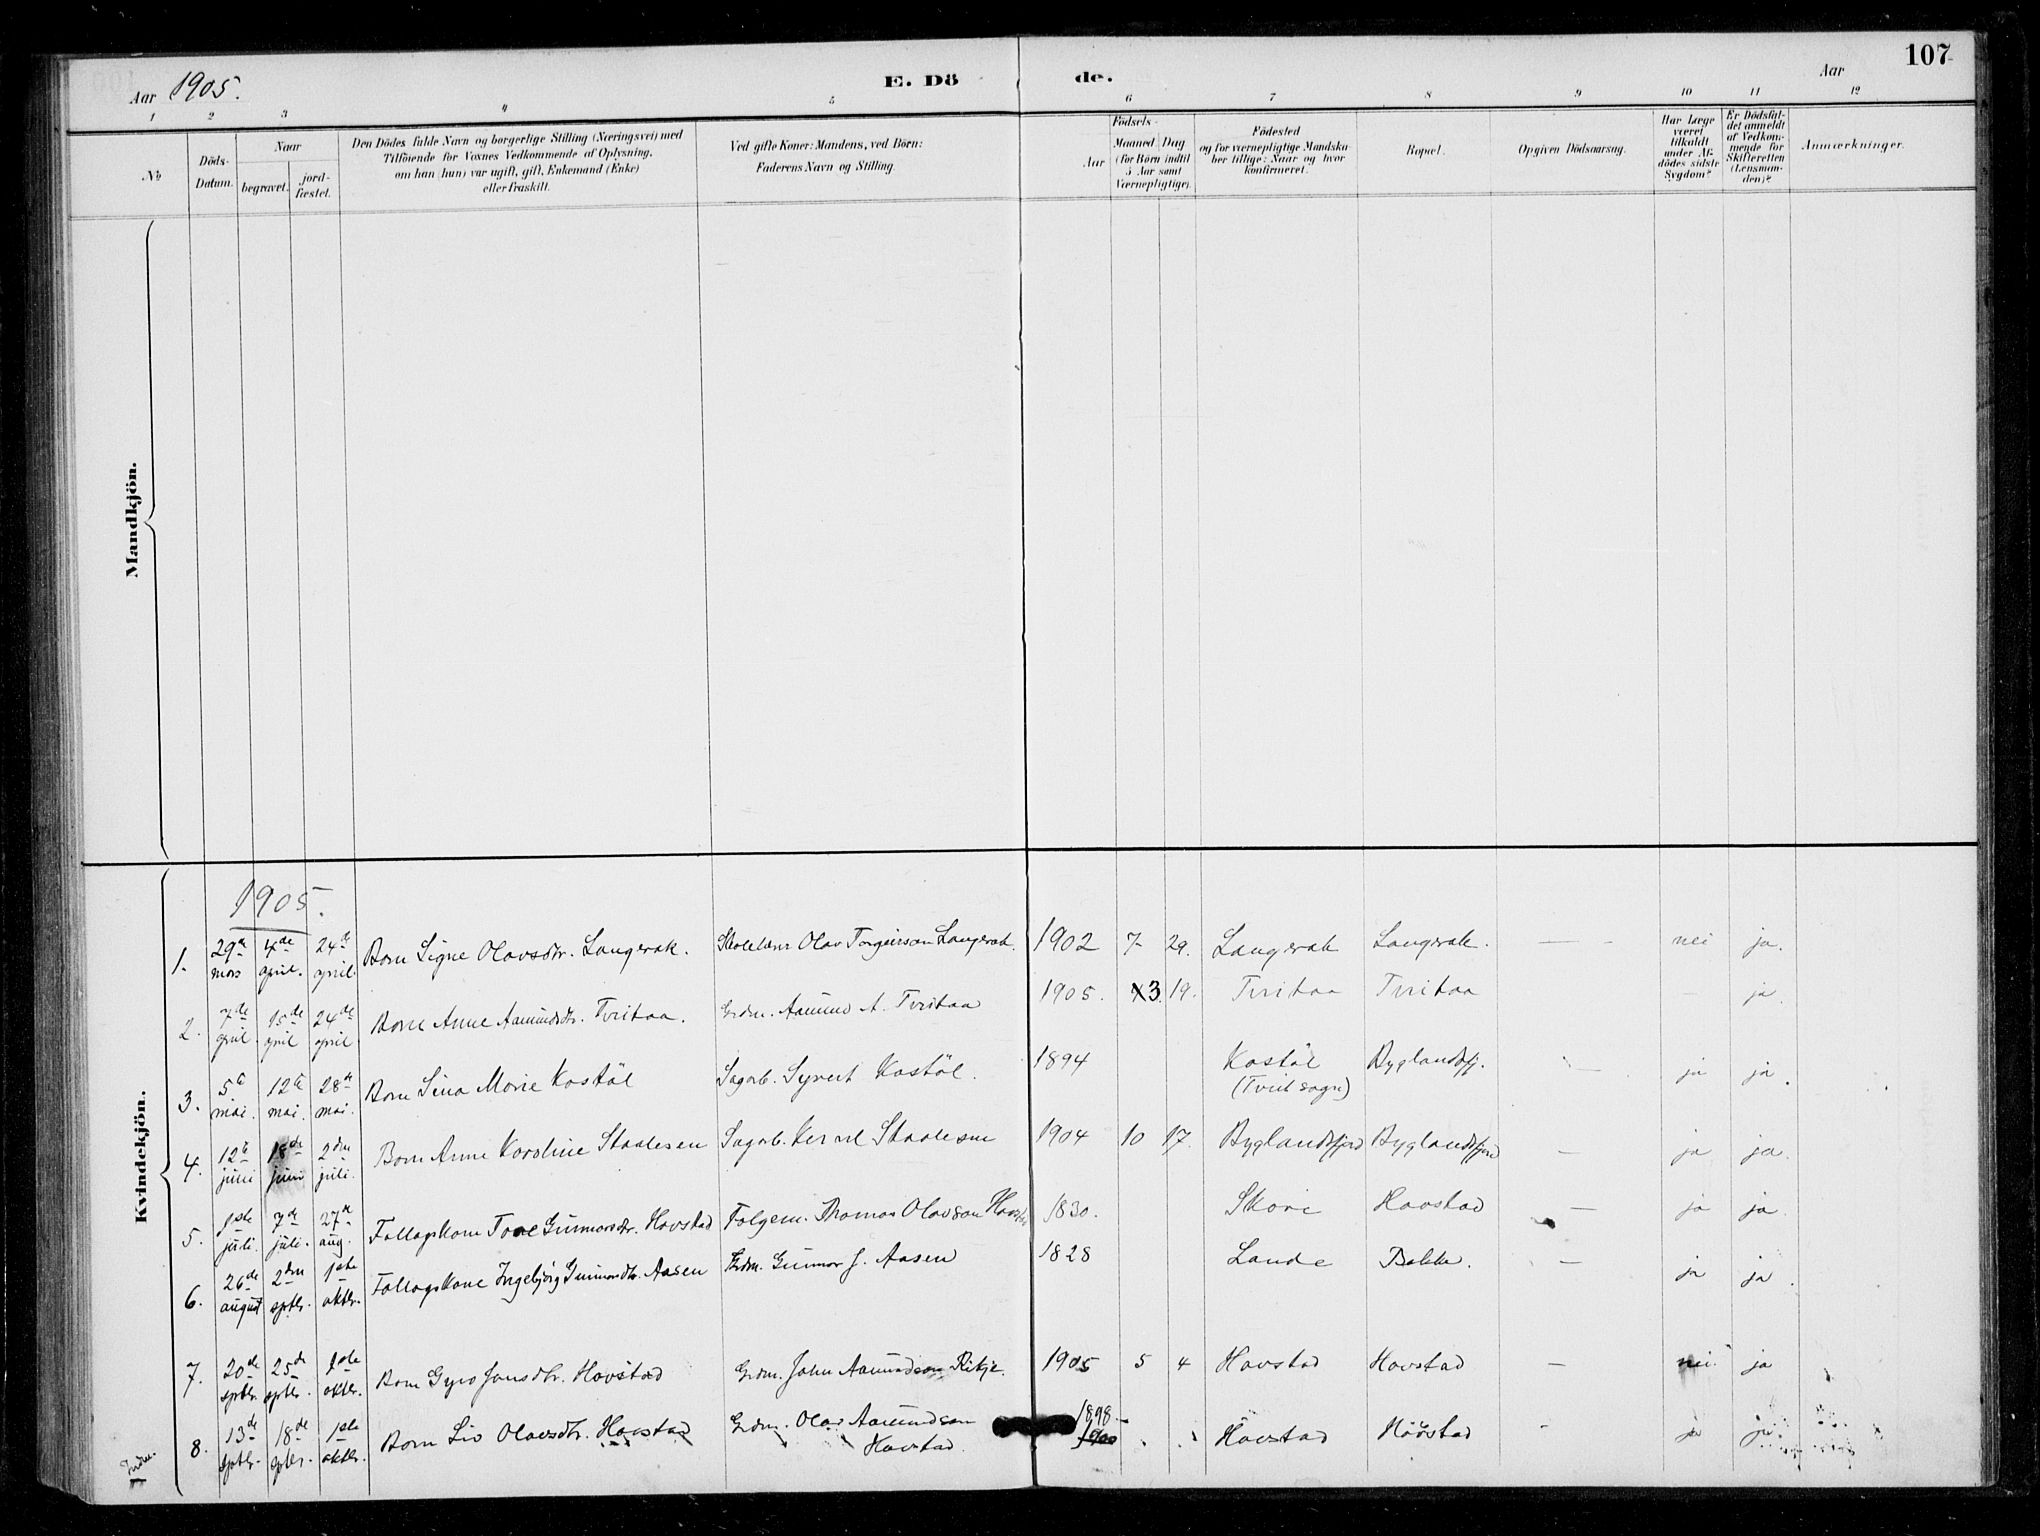 107
Aar 1905.
E. Dö de.
Aar
1 2 3 4 5 6 7 8 9 10 11 12
№
Döds-Datum.
Naar
begravet.
jord-fæstet.
Den Dödes fulde Navn og borgerlige Stilling (Næringsvei) med
Tilföiende for Voxnes Vedkommende af Oplysning,
om han (hun) var ugift, gift, Enkemand (Enke)
eller fraskilt.
Ved gifte Koner: Mandens, ved Börn:
Faderens Navn og Stilling.
Födsels-
Aar
Maaned Dag
(for Börn indtil
5 Aar samt
Værnepligtige).
Födested
og for værnepligtige Mandska-
ber tillige: Naar og hvor
konfirmeret.
Bopæl.
Opgiven Dödsaarsag.
Har Læge
været
tilkaldt
under Af-
dödes sidste
Sygdom?
Er Dödsfal-
det anmeldt
af Vedkom-
mende for
Skifteretten
(Lensman-
den)?
Anmærkninger.
Mandkjön.
Kvindekjön.
1905.
1. 29de mars 4de april. 24de april. Barn Signe Olavsdtr. Langerak. Olav Torgeirson Langerak. 1902 7 29. Langerak Langerak. — nei ja.
2. 7de april. 15de april 24de april Barn Anne Aamundsdtr. Tveitaa. Grdm. Aamund A. Tveitaa 1905. 3. 19. Tveitaa Tveitaa — ja.
3. 5te mai. 12te mai. 28de mai. Barn Sina Marie Kostöl Sagarb. Syvert Kostöl. 1894 Kostöl (Tveit sogn) Byglandsfj. — ja ja.
4. 12te juni 18de juni 2den juli. Barn Anne Karoline Staalesen Sagarb. Staalesen 1904 10 17. Byglandsfjord Byglandsfjord — ja ja.
5. 1ste juli. 7de juli. 27de aug. Follagskone Tone Gunnarsdtr. Havstad Folgem. Thomas Olavson Havstad 1830. Skove Havstad — ja ja.
6. 26de august 2den sptbr. 1ste oktbr. Follagskone Ingebjörg Gunnarsdtr. Aasen Gunnar J. Aasen 1828 Lande Bakke. — ja ja.
7. 20de sptbr. 25de sptbr. 1ste oktbr. Barn Gyro Jonsdtr. Havstad Grdm. John Aamundson 1905 5 4 Havstad Havstad — nei. ja
8. 13de sptbr. 18de sptbr. 1ste oktbr. Barn Liv Olavsdtr. Havstad Grdm. Olav Aamundson Havstad. 1898 1900 Havstad Havstad — ja ja.